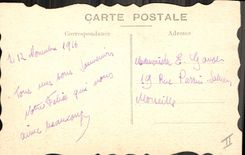 CARTE POSTALE
Correspondance
Adresse
Le 12 Décembre 1916
Tous mes bons Souvenirs
Notre qui nous
aime beaucoup
Mademoiselle E.
19 Rue
Marseille
II